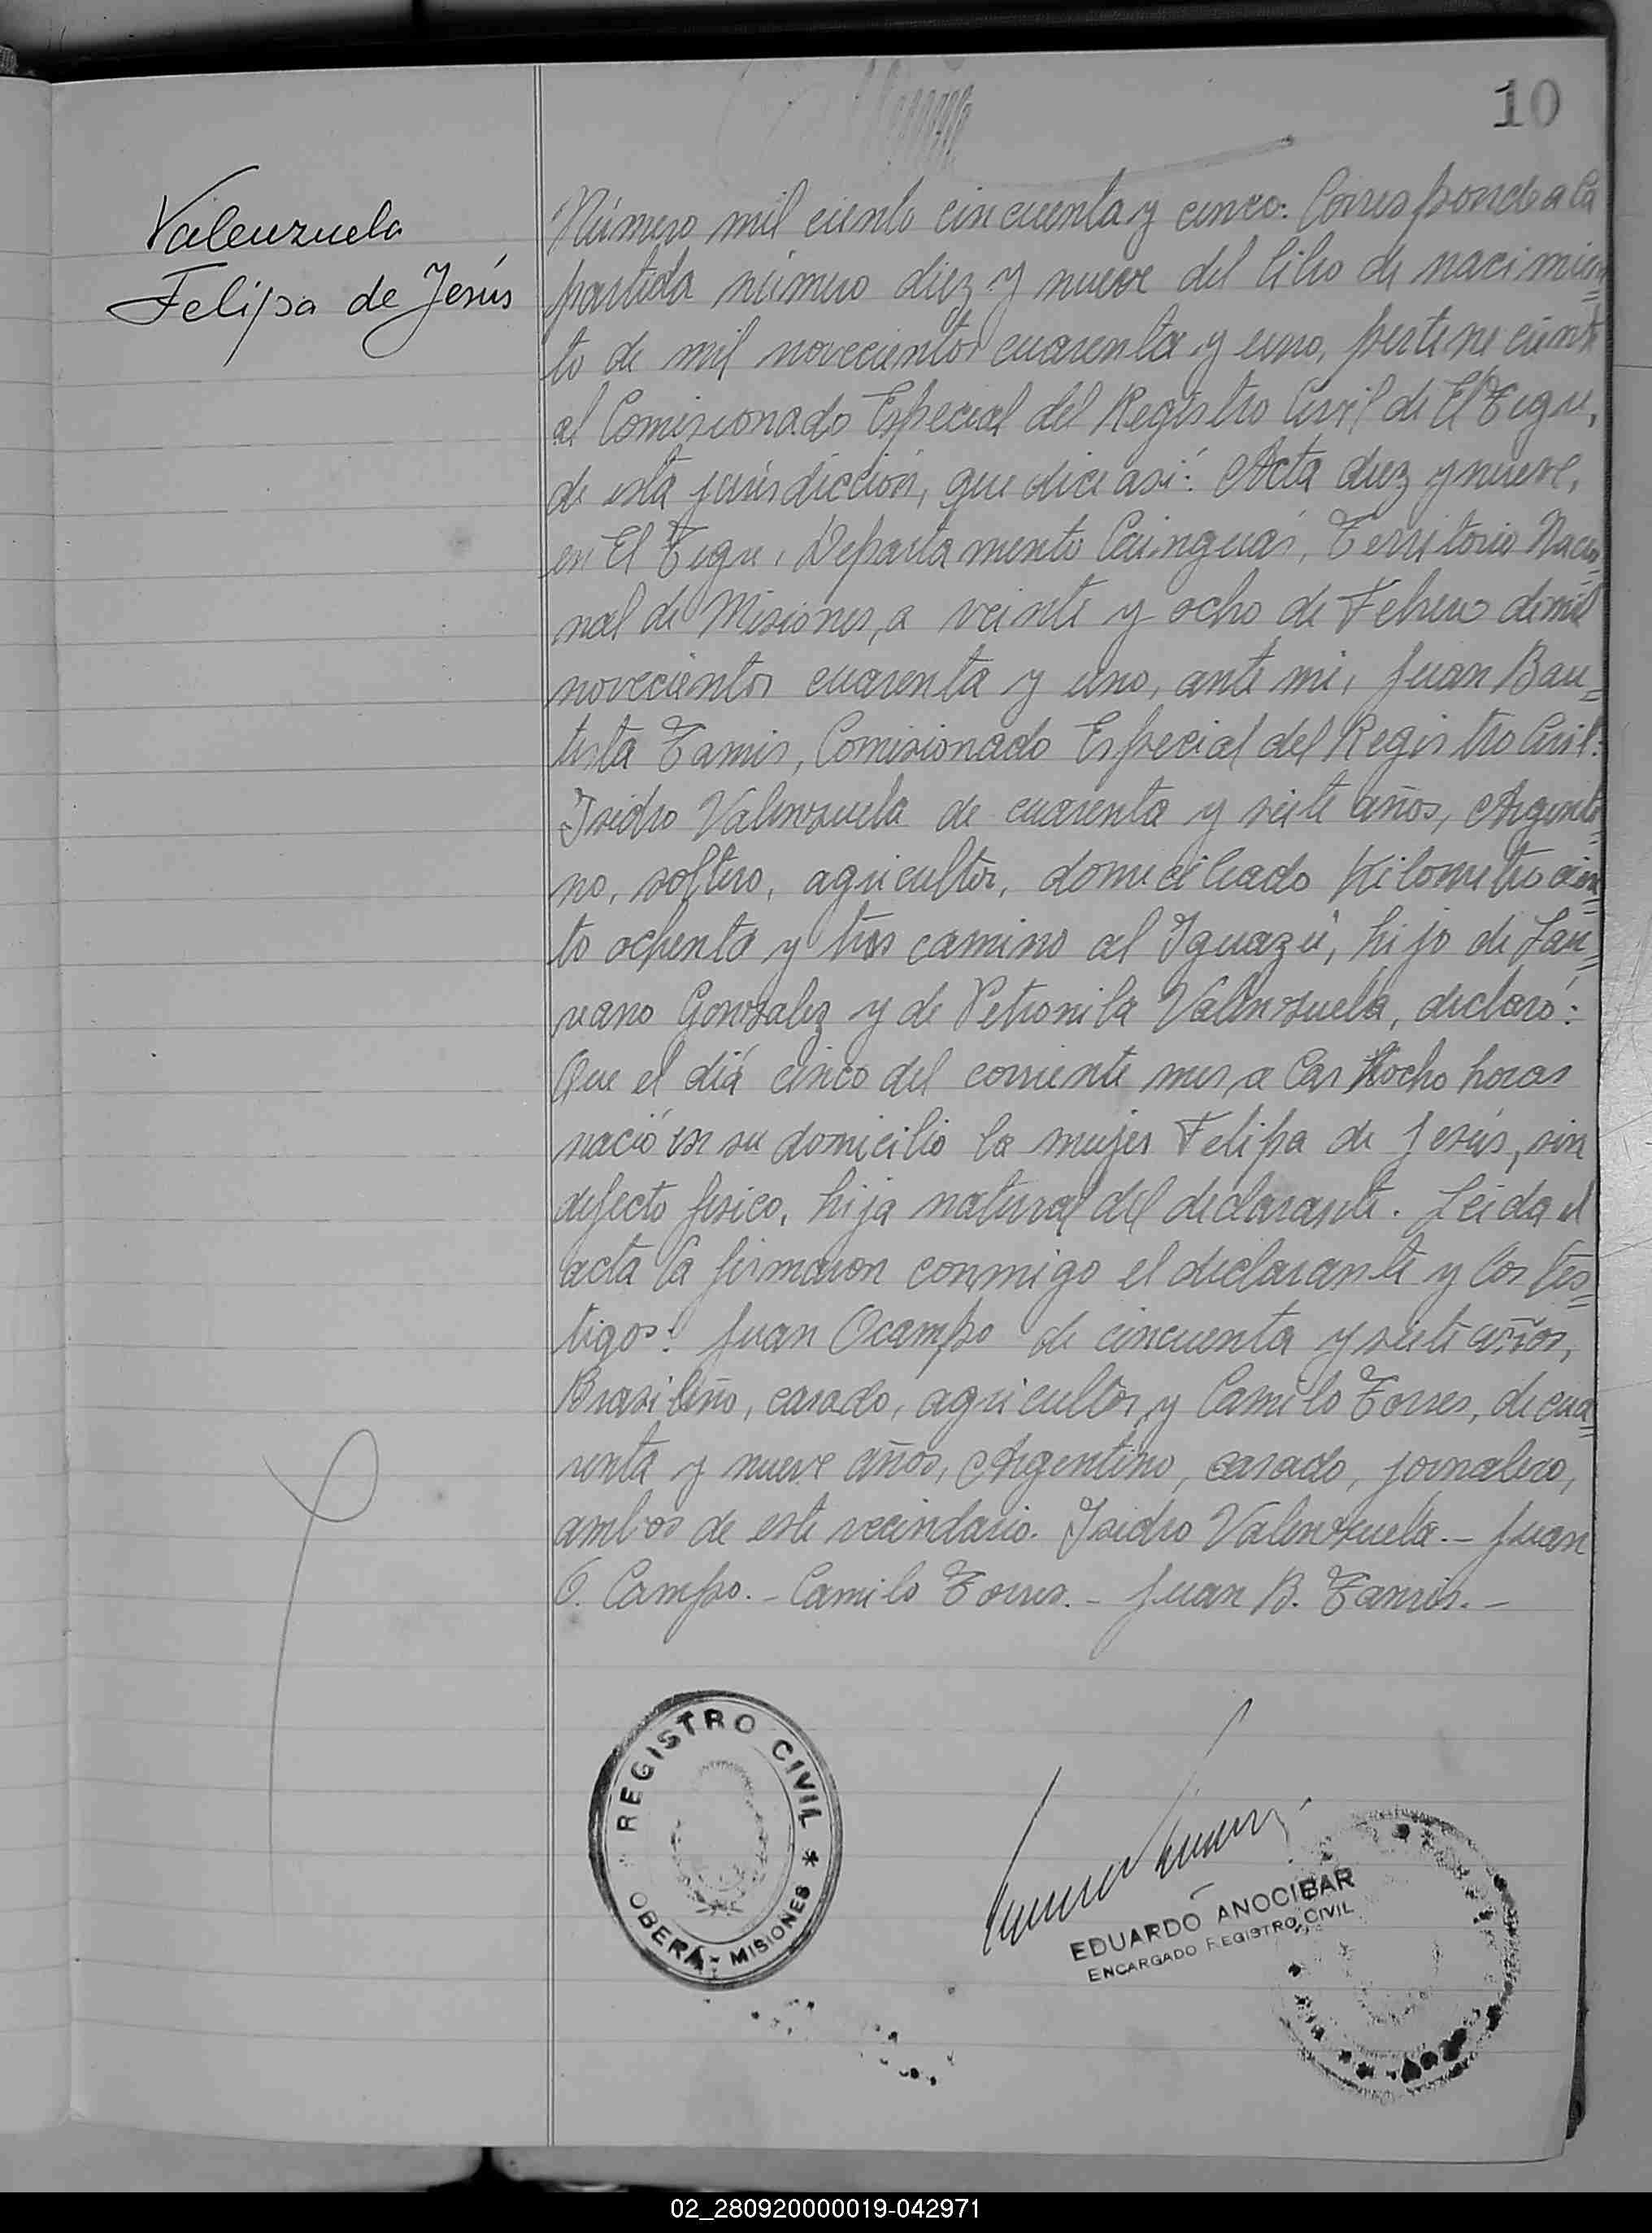 10
Valenzuela
Felipa de Jesús
Número mil ciento cincuenta y cinco: Corresponde a la
partida número diez y nueve del libro de nacimien=
to de mil novecientos cuarenta y uno, perteneciente
al Comisionado Especial del Registro Civil de El Tigre,
de esta jurisdicción, que dice asi: Acta diez y nueve,
en El Tigre, Departamento Cainguás, Territorio Nacio=
nal de Misiones, a veinte y ocho de Febrero de mil
novecientos cuarenta y uno, ante mi, Juan Bau=
tista Tamis, Comisionado Especial del Registro Civil:
Isidro Valenzuela de cuarenta y siete años, Argenti=
no, soltero, agricultor, domiciliado Kilometro cien=
to ochenta y tres camino al Iguazú, hijo de Lau=
reano Gonzalez y de Petronila Valenzuela, declaró:
Que el día cinco del corriente mes a las ocho horas
nació en su domicilio la mujer Felipa de Jesús, sin
defecto fisico, hija natural del declarante. Leida el
acta la firmaron conmigo el declarante y los tes=
tigos: Juan Ocampo de cincuenta y siete años,
Brasileño, casado, agricultor y Camilo Torres, de cua=
renta y nueve años, Argentino, casado, jornalero,
ambos de este vecindario. Isidro Valenzuela.- Juan
O. Campo.- Camilo Torres.- Juan B. Tamis.-
REGISTRO CIVIL
OBERÁ - MISIONES
EDUARDO ANOCIBAR
ENCARGADO REGISTRO CIVIL
02_280920000019-042971